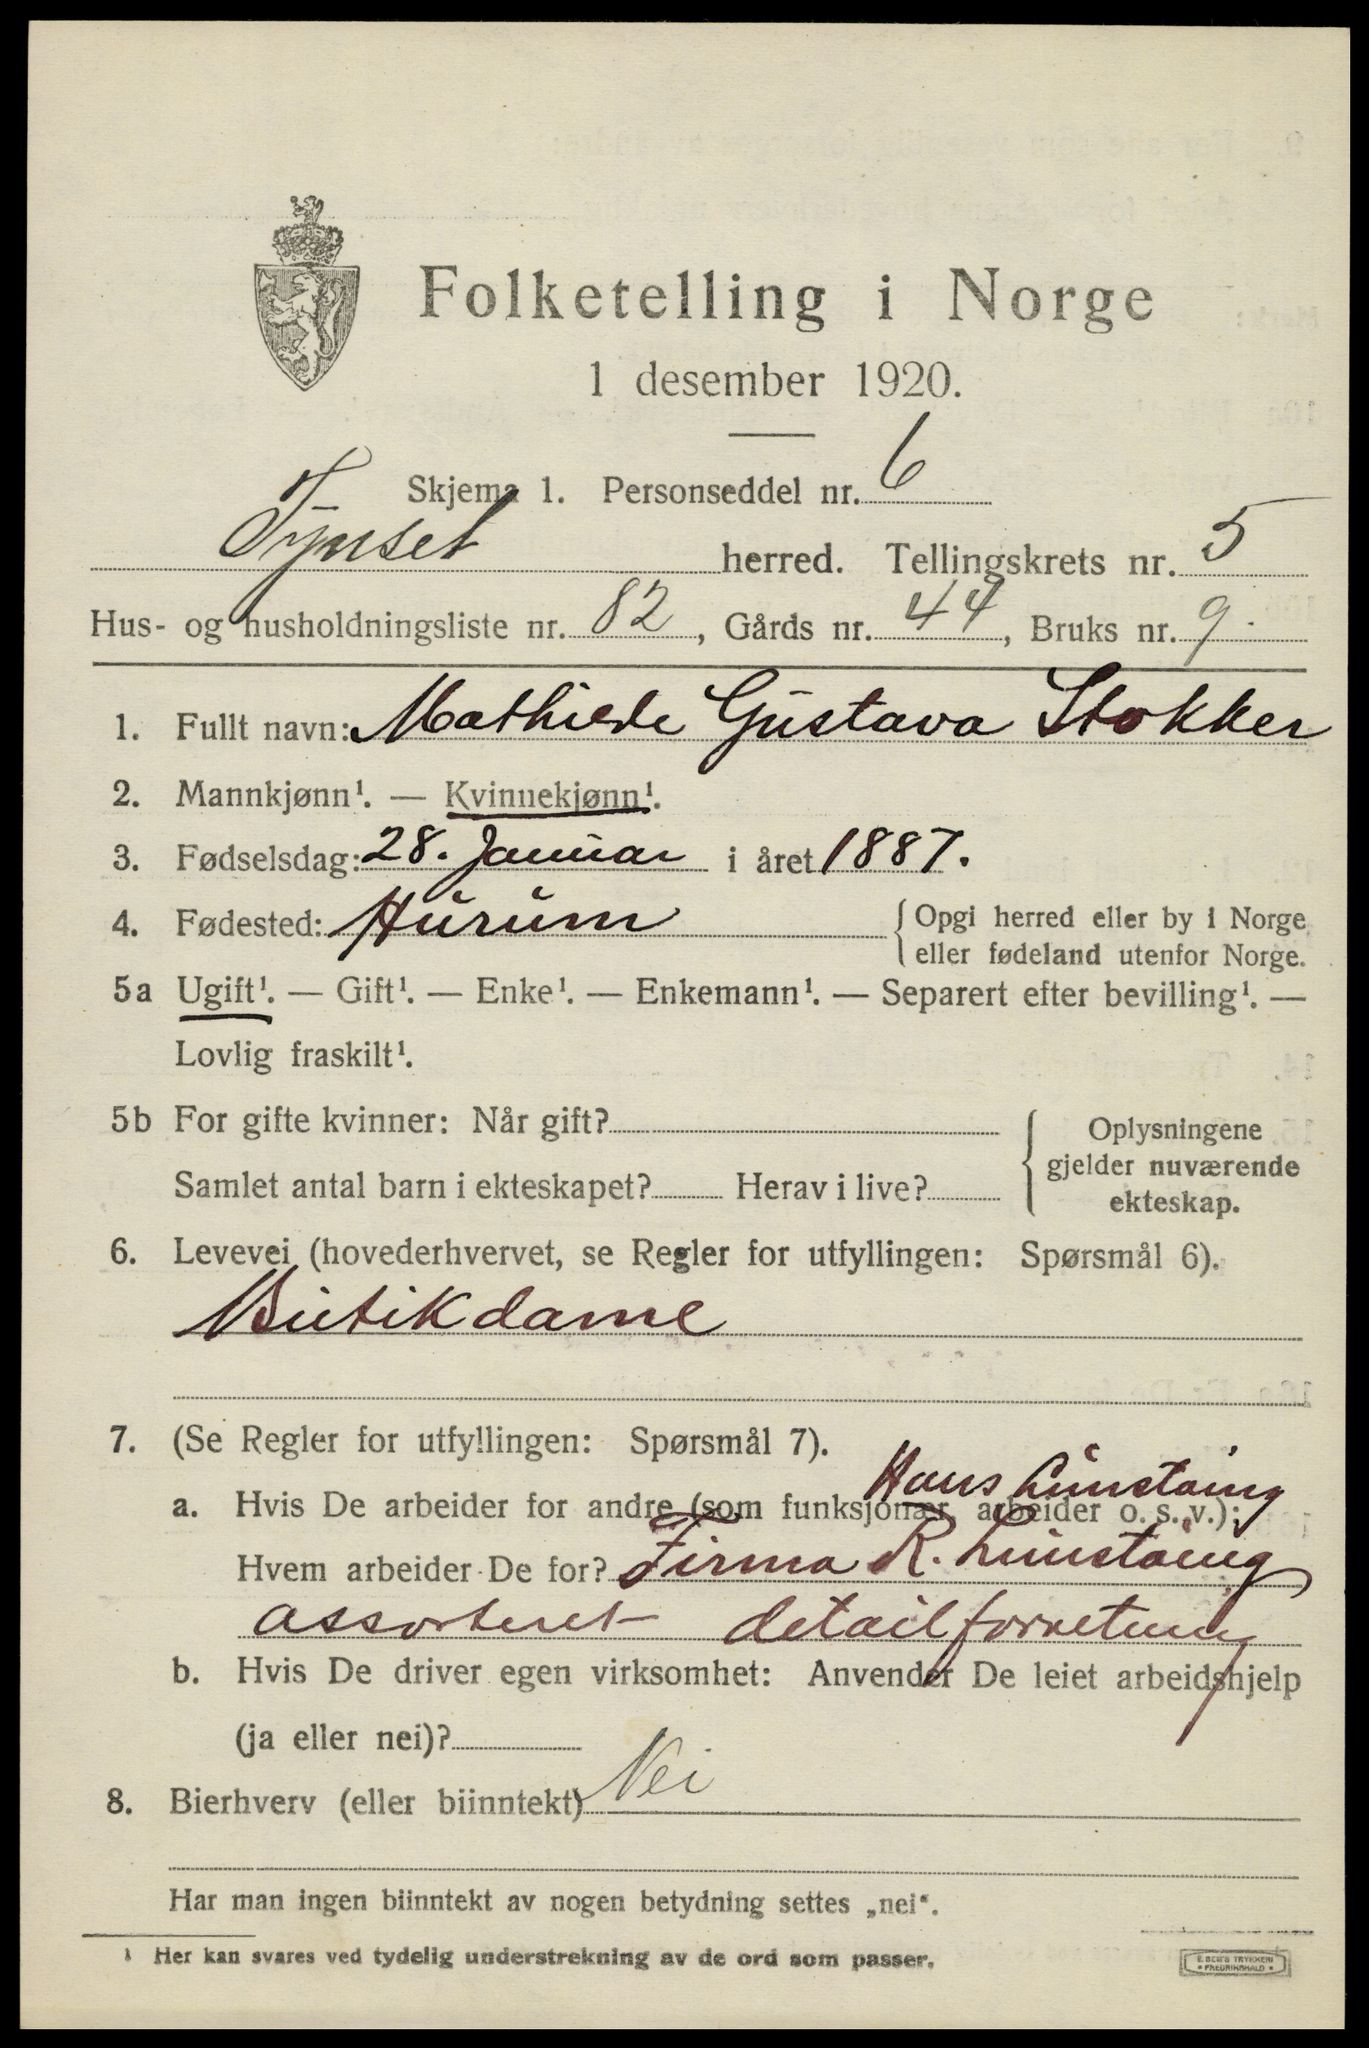 Folketelling i Norge
1 desember 1920.
Skjema 1. Personseddel nr. 6
Tynset herred. Tellingskrets nr. 5
Hus- og husholdningsliste nr. 82, Gårds nr. 44, Bruks nr. 9.
1. Fullt navn: Mathilde Gustava Stokker
2. Mannkjønn¹. — Kvinnekjønn¹.
3. Fødselsdag: 28. Januar i året 1887.
4. Fødested: Hurum { Opgi herred eller by i Norge
eller fødeland utenfor Norge.
5a Ugift¹. — Gift¹. — Enke¹. — Enkemann¹. — Separert efter bevilling¹. —
Lovlig fraskilt¹.
5b For gifte kvinner: Når gift?
Samlet antal barn i ekteskapet? Herav i live?
{ Oplysningene
gjelder nuværende
ekteskap.
6. Levevei (hovederhvervet, se Regler for utfyllingen: Spørsmål 6).
Butikdame
7. (Se Regler for utfyllingen: Spørsmål 7).
Hans
a. Hvis De arbeider for andre (som funksjonær, arbeider o. s. v.):
Hvem arbeider De for? Firma R.
assorteret detailforretning
b. Hvis De driver egen virksomhet: Anvender De leiet arbeidshjelp
(ja eller nei)?
8. Bierhverv (eller biinntekt) Nei
Har man ingen biinntekt av nogen betydning settes „nei“.
¹ Her kan svares ved tydelig understrekning av de ord som passer.
E. BERG TRYKKERI
• FREDRIKSHALD •